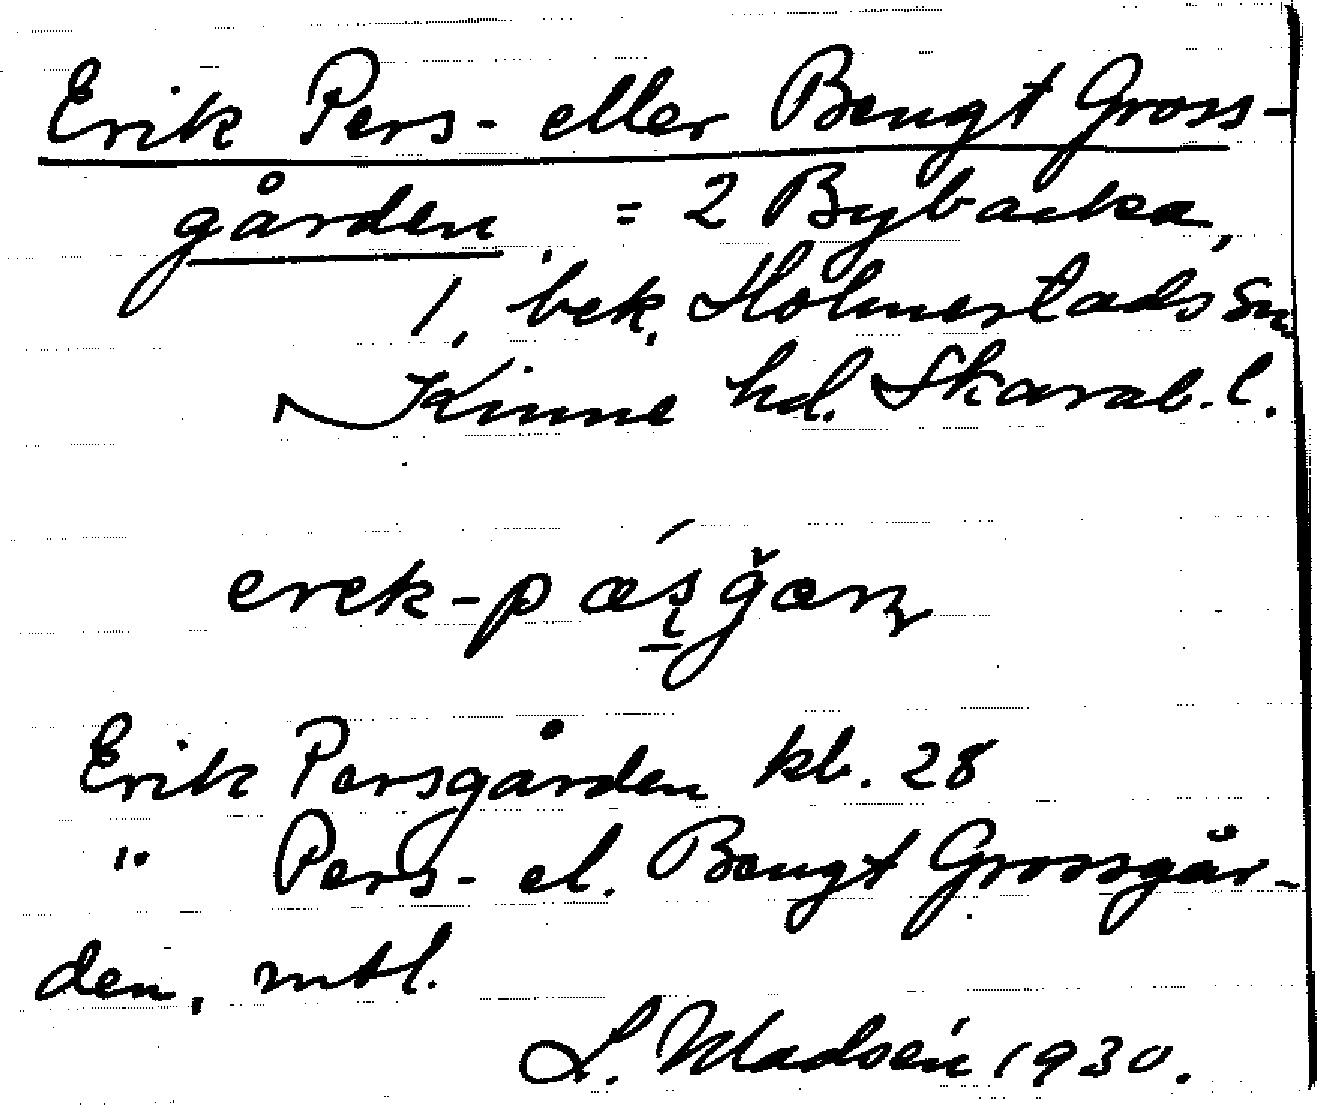 Erik Pers- eller Bengt Gross-
gården = 2 Bybacka,
1, bek. Holmestads sn
Kinne hd. Skarab. l.
erek-pæʂǧan
Erik Persgården kb. 28
" Pers- el. Bengt Grossgår-
den, mtl.
L. Madsén 1930.